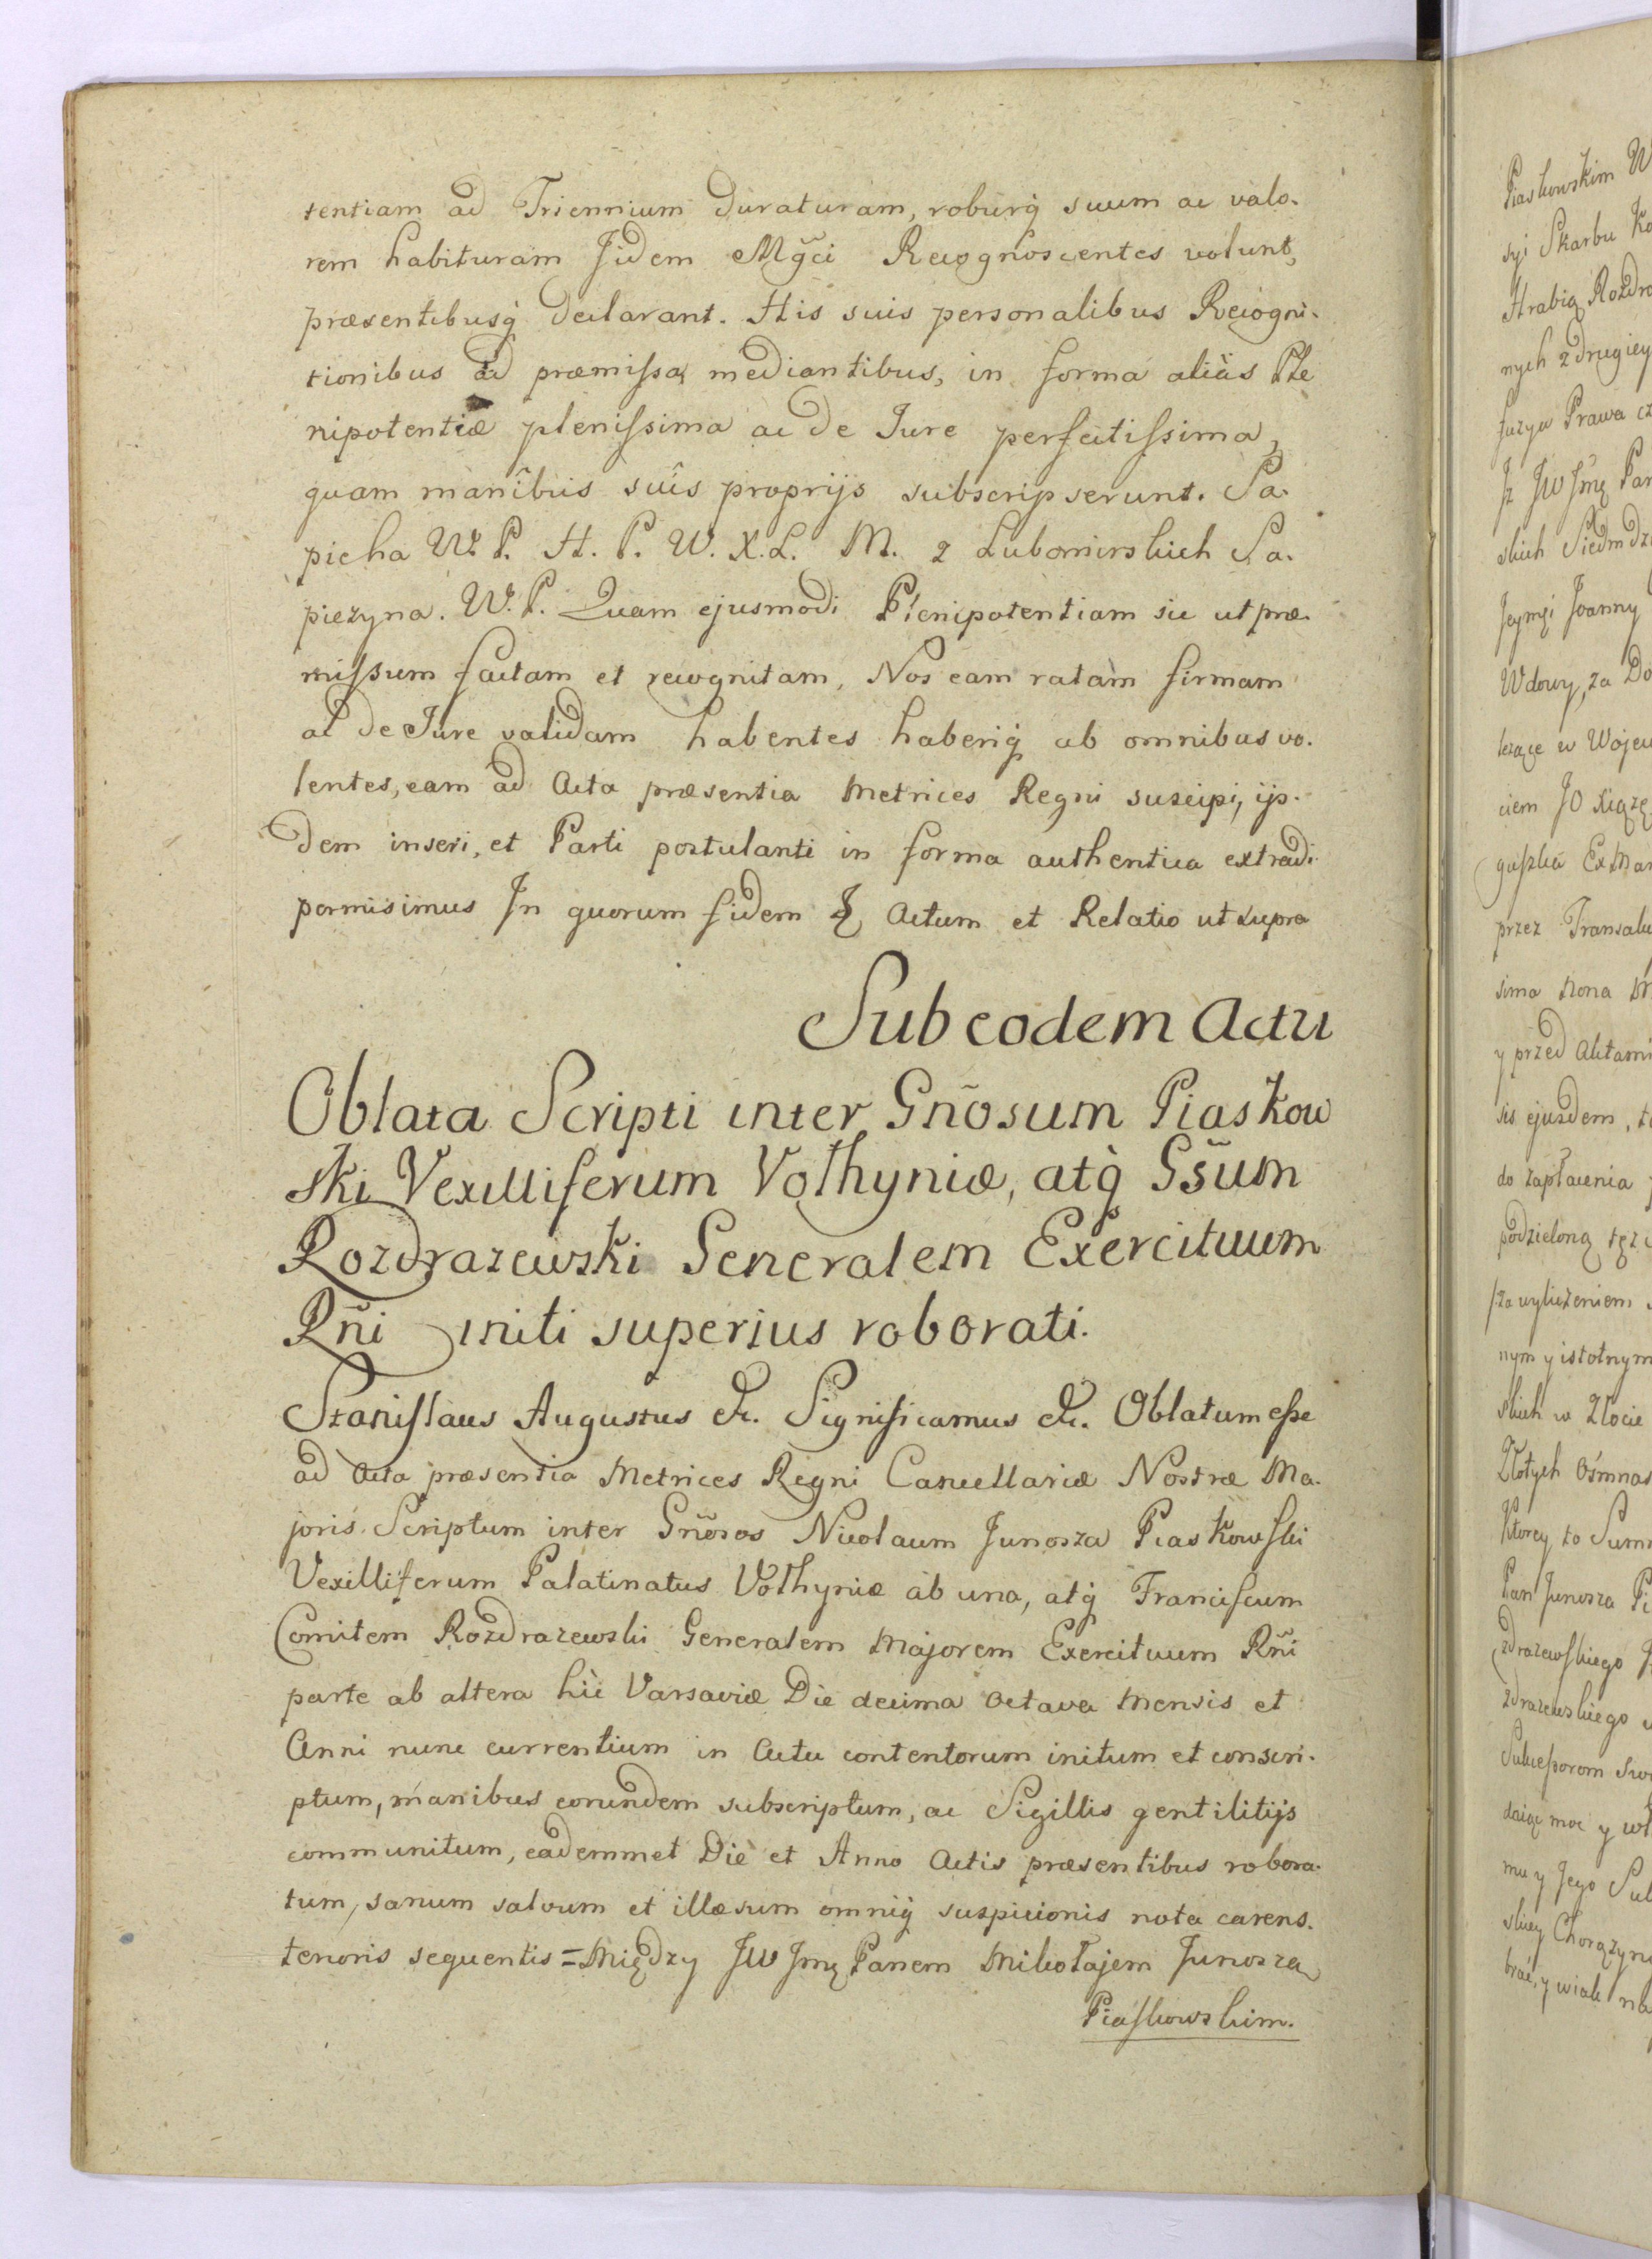 tentiam ad Triennium duraturam, roburq̀ suum ac valo-
rem habituram Jidem Mg̃ci Recognoscentes volunt,
præsentibusq̀ declarant. His suis personalibus Recogni-
tionibus ad præmissa mediantibus, in forma aliàs Ple
nipotentiæ plenissima ac de Jure perfectissima,
quam manibus suis proprijs subscripserunt. Sa-
pieha W. P. H. P. W. X. L. M. z Lubomirskich Sa-
piezyna. W. P. Quam ejusmodi Plenipotentiam sic ut præ-
missum factam et recognitam, Nos eam ratam firmam
ac de Jure validam habentes haberiq̀ ab omnibus vo-
lentes, eam ad Acta præsentia Metrices Regni suscipi, ijs-
dem inseri, et Parti postulanti in forma authentica extradi
permisimus In quorum fidem & Actum et Relatio ut supra
Sub eodem Actu
Oblata Scripti inter Gñosum Piaskow
ski Vexilliferum Volhyniæ, atq̀ Gs̃um
Rozdrazewski Generalem Exercituum
Rñi initi superius roborati.
Stanislaus Augustus &c. Significamus &c. Oblatum esse
ad Acta præsentia Metrices Regni Cancellariæ Nostræ Ma-
joris Scriptum inter Gñosos Nicolaum Junosza Piaskowski
Vexilliferum Palatinatus Volhyniæ ab una, atq̀ Franciscum
Comitem Rozdrazewski Generalem Majorem Exercituum Rñi
parte ab altera hic Varsaviæ Die decima Octava Mensis et
Anni nunc currentium in Actu contentorum initum et conscri-
ptum, manibus eorundem subscriptum, ac Sigillis gentilitijs
communitum, eademmet Die et Anno Actis præsentibus robora-
tum, sanum salvum et illæsum omniq̀ suspicionis nota carens.
tenoris sequentis = Między JW Jmę Panem Mikołajem Junosza
Piaskowskim.
Piaskowskim W
syi Skarbu Ko
Hrabią Rozdra
nych z drugiey
Jz JW Jmę Pan
skich Siedmdzi
Jeymci Joanny
Wdowy, za Do
leżące w Wojew
ciem JO Xiązę
przez Transalu
sima Nona M
y przed Aktami
sis ejusdem, t
do zapłacenia
podzieloną tęz
za wyliczeniem
nym y istotnym
skich w Złocie
Złotych Ośmnas
Ktorey to Summ
Pan Junosza Pi
zdrazewskiego J
zdrazewskiego
Sukcessorom Swo
daiąc moc y wł
mu y Jego Suk
skiey Chorązyn
brać, y wiak na